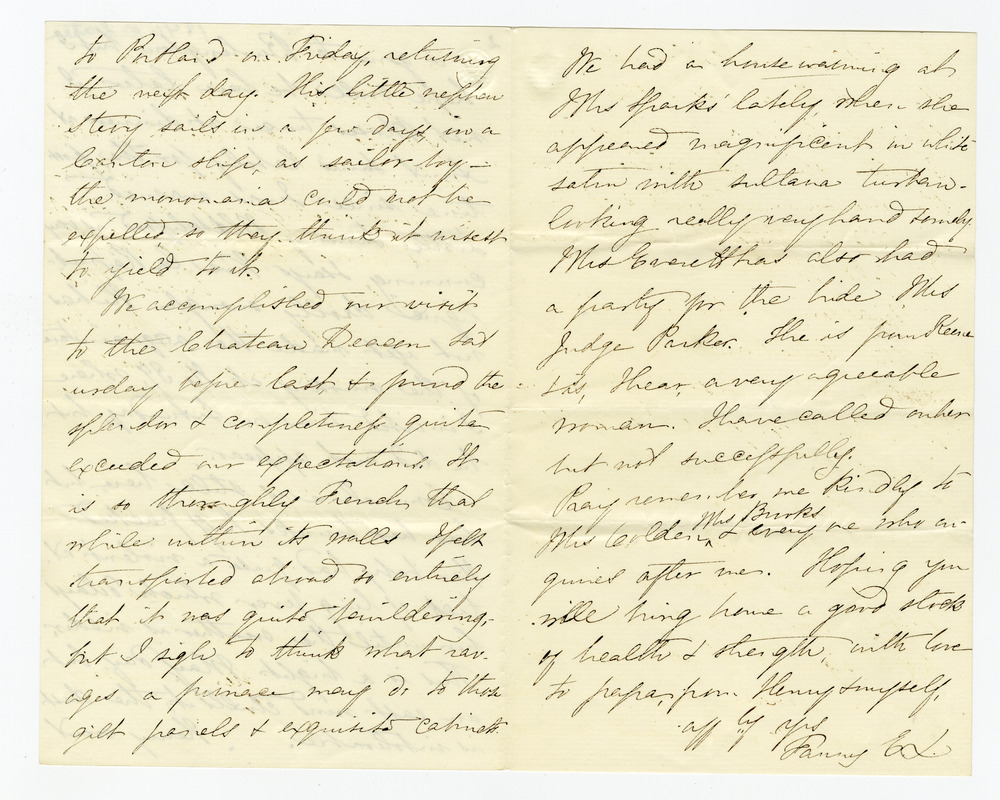 to Portland on Friday, returning
the next day. His little nephew
Stevy sails in a few days, in a
Canton ship, as sailor boy –
the monomania could not be
expelled, so they think it wisest
to yield to it.
We accomplished our visit
to the Chateau Deacon Sat
urday before last, & found the
splendor & completeness quite
exceeded our expectations. It
is so thoroughly French, that
while within its walls I felt
transported abroad so entirely
that it was quite bewildering,
but I sigh to think what rav-
ages a furnace may do to those
gilt panels & exquisite cabinets.
We had a house warming at
Mrs Sparks' lately, when she
appeared magnificent in white
satin with sultana turban –
looking really very handsomely.
Mrs Everett has also had
a party for the bride Mrs
Judge Parker. She is from Keene
& is, I hear, a very agreeable
woman. I have called on her
but not successfully.
Pray remember me kindly to
Mrs Golden, Mrs Burks & every one who en-
quires after me. Hoping you
will bring home a good stock
of health & strength, with love
to papa, from Henry & myself,
aff ly yrs
Fanny E L.